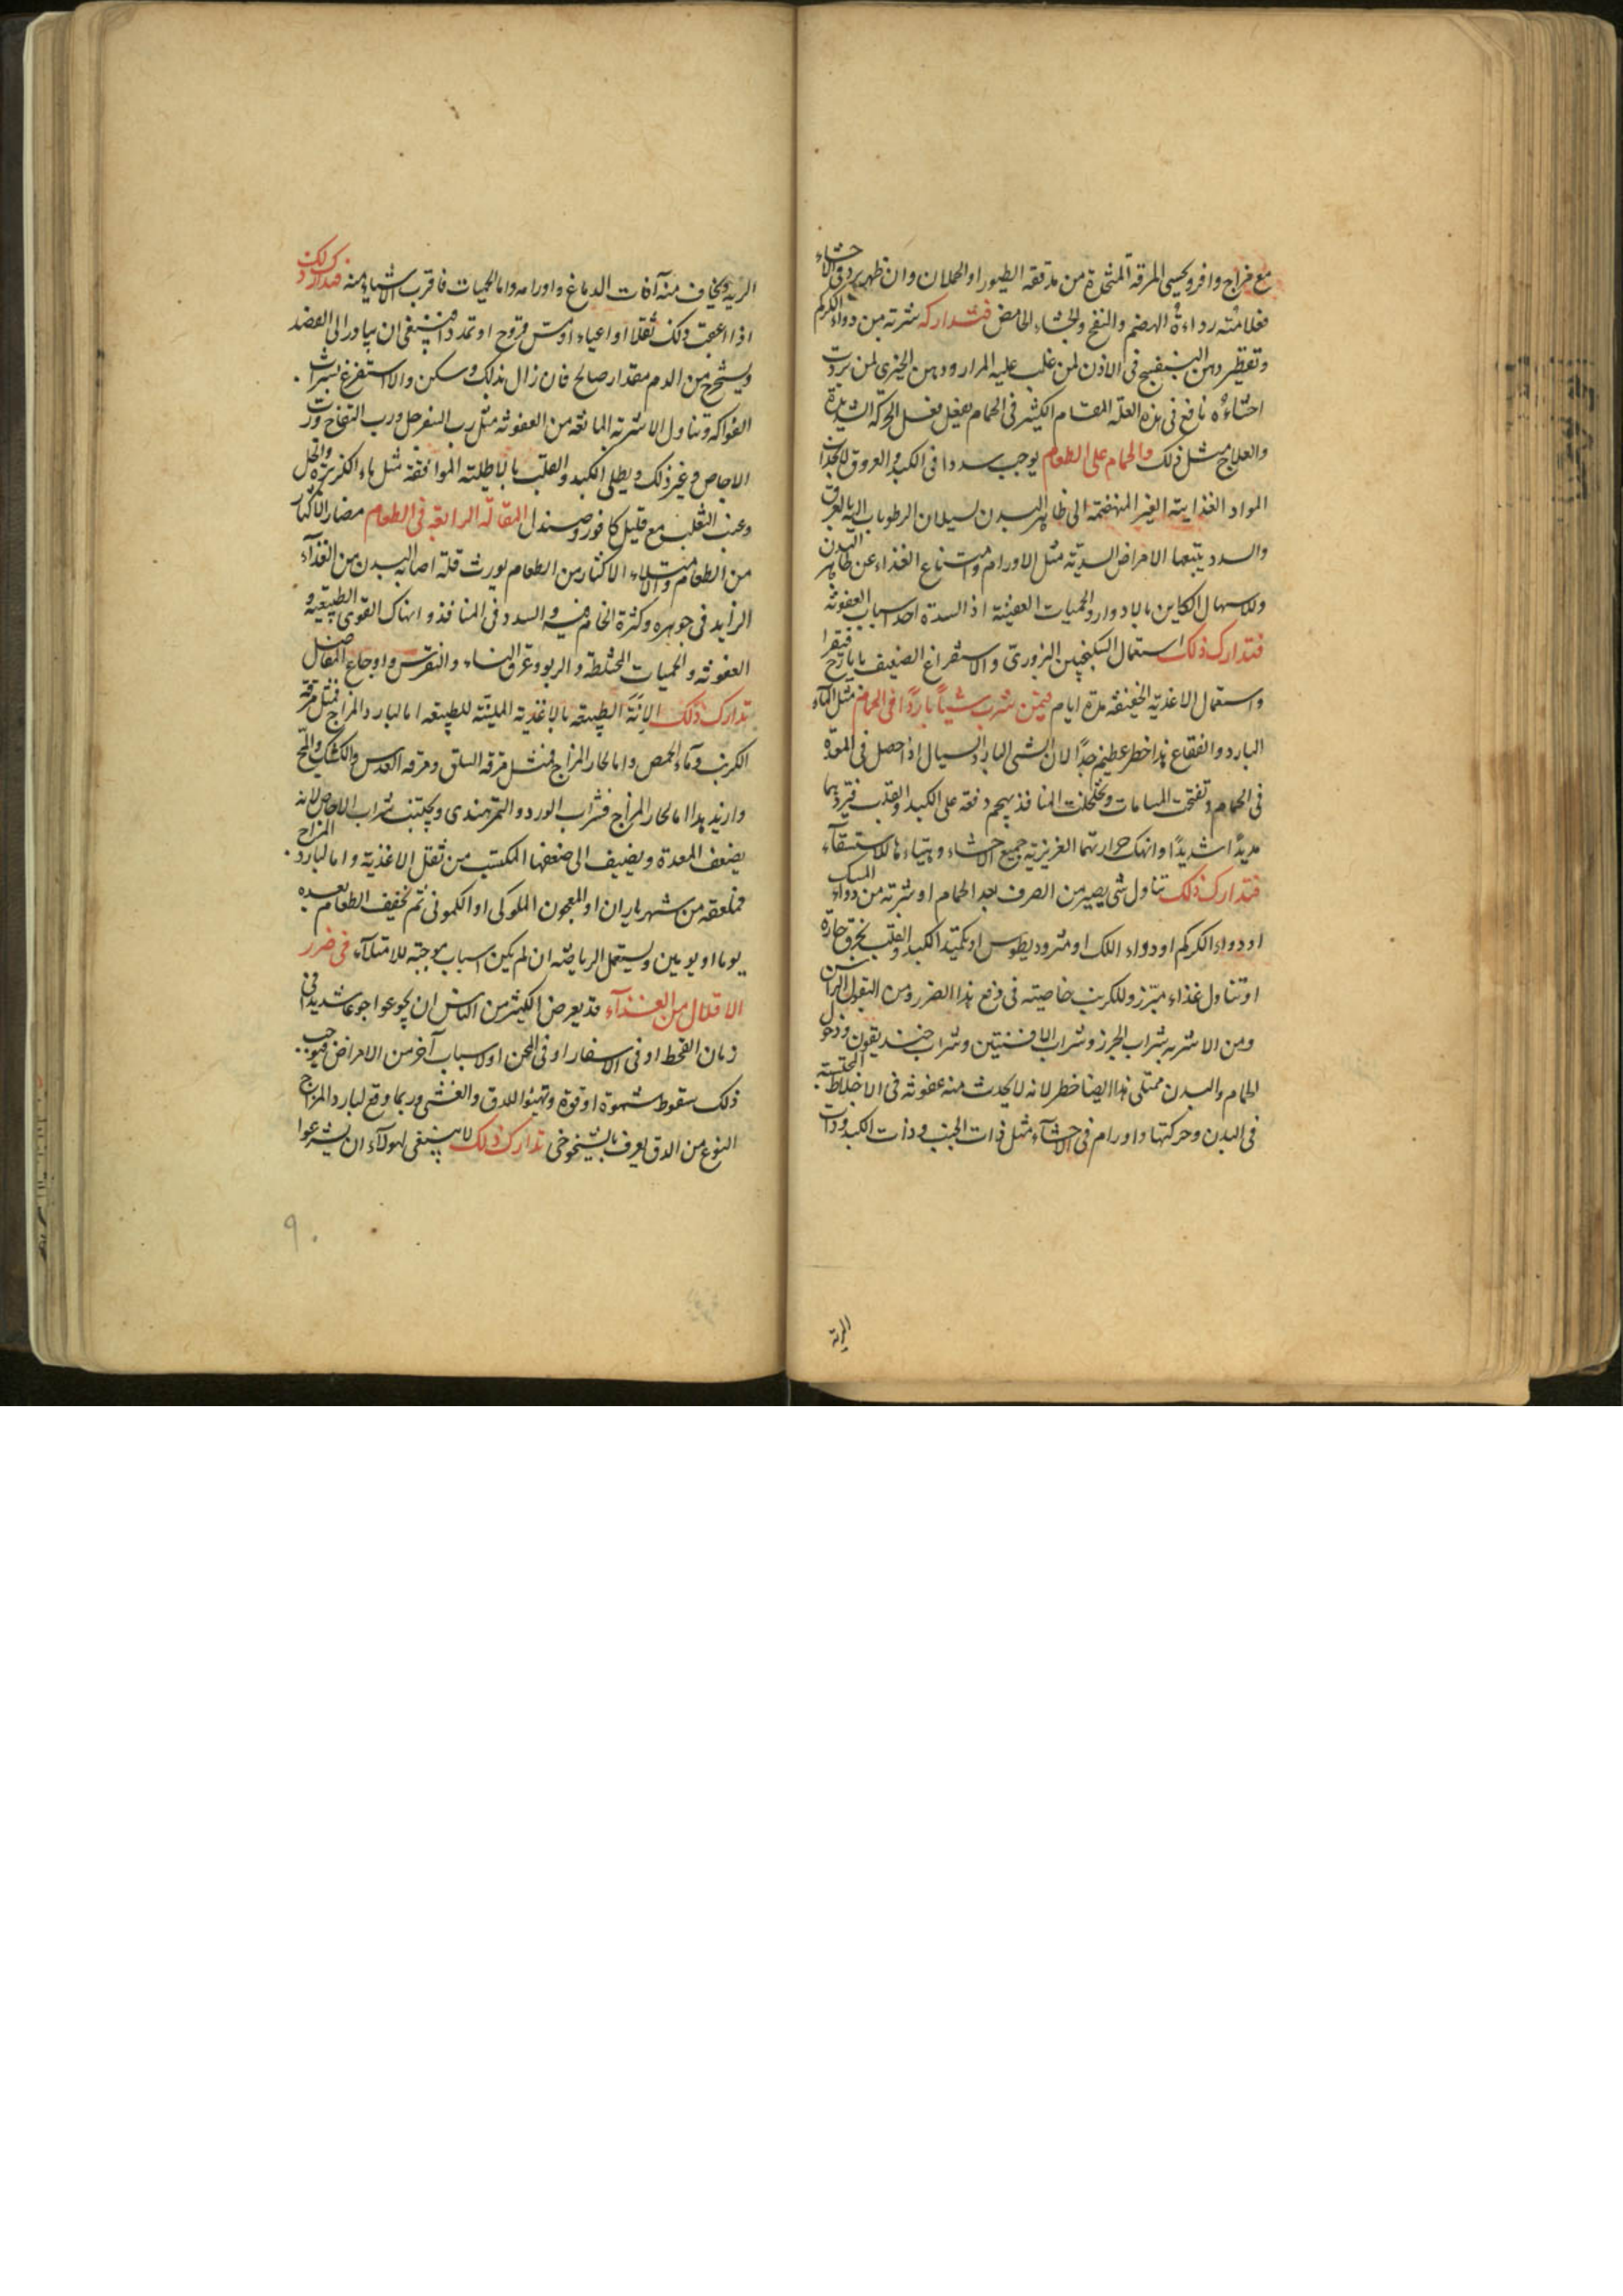 مع مزاج وافر ويحسى المرقة المتخذة من مدققة الطيور او الحملان وان ظهر برد في الاحشاء
فعلامته رداءة الهضم والنفخ والجشاء الحامض فتداركه شربة من دواء الكركم
وتقطير دهن البنفسج في الاذن لمن غلب عليه المرار ودهن الخيرى لمن بردت
احشاؤه نافع في هذه العلة المقام الكثير في الحمام يفعل فعل الحركة الشديدة
والعلاج مثل ذلك والحمام على الطعام يوجب سددا في الكبد والعروق لانجذاب
المواد الغذايية الغير المنهضمة الى ظاهر البدن لسيلان الرطوبات اليه بالعرق
والسدد يتبعها الامراض السددية مثل الاورام وامتناع الغذاء عن ظاهر البدن
وللاسهال الكاين بالادوار والحميات العفنية اذ السدة احد اسباب العفونة
فتدارك ذلك استعمال السكنجبين البزورى والاستفراغ الضعيف بايارج فيقرا
واستعمال الاغذية الخفيفة مدة ايام فيمن شرب شيأ باردا في الحمام مثل الماء
البارد والفقاع هذا خطر عظيم جدا لان الشى البارد السيال اذا حصل في المعدة
في الحمام وتفتحت المسامات وتخلخلت المنافذ يهجم دفعة على الكبد والقلب فتبردهما
بردا شديدا وانهك حرارتهما الغريزية جميع الاحشاء وتهياءها للاستسقاء
فتدارك ذلك تناول شى يسير من الصرف بعد الحمام او شربة من دواء المسك
او دواء الكركم او دواء اللك او مثروديطوس او تكميد الكبد والقلب بخرق حارة
او تناول غذاء مبزر وللكرنب خاصيته في دفع هذا الضرر ومن البقول الراسن
ومن الاشربة شراب الجزر وشراب الافسنتين وشراب خنديقون ودخول
الحمام والبدن ممتلى هذا ايضا خطر لانه لا يحدث منه عفونة في الاخلاط المحتبسة
في البدن وحركتها واورام في الاحشاء مثل ذات الجنب وذات الكبد وذات
الرية
الرية ويخاف منه آفات الدماغ واورامه واما الحميات فاقرب الاشياء منه فتدارك ذلك
اذا اعقب ذلك ثقلا او اعياء او مس قروح او تمدد فينبغي ان يبادر الى الفصد
ويستخرج من الدم مقدار صالح فان زال بذلك وسكن والا استفرغ بشراب
الفواكه وتناول الاشربة المانعة من العفونة مثل رب السفرجل ورب التفاح ورب
الاجاص وغير ذلك ويطلى الكبد والقلب بالاطلية الموافقة مثل ماء الكزبرة والخل
وعنب الثعلب مع قليل كافور وصندل المقالة الرابعة في الطعام مضار الاكثار
من الطعام والامتلاء الاكثار من الطعام يورث قلة اصابة البدن من الغذاء
الزايد في جوهره وكثرة الخام فيه والسدد في المنافذ وانهاك القوى الطبيعية و
العفونة والحميات المختلطة والربو وعرق النساء والنقرس واوجاع المفاصل
تدارك ذلك الانة الطبيعة بالاغذية الملينة للطبيعة اما لبارد المزاج فمثل مرقة
الكرنب وماء الحمص واما لحار المزاج فمثل مرقة السلق ومرقة العدس والكشك والمح
وازيد بهذا اما لحار المزاج فشراب الورد والتمر هندى ويجتنب شراب الاجاص لانه
يضعف المعدة ويضيف الى ضعفها المكتسب من ثقل الاغذية واما لبارد المزاج
فملعقة من شهرياران او المعجون الملوكى او الكمونى ثم تخفيف الطعام بعده
يوما او يومين ويستعمل الرياضة ان لم يكن اسباب موجبة للامتلاء في ضرر
الاقلال من الغذاء قد يعرض لكثير من الناس ان يجوعوا جوعا شديدا في
زمان القحط او في الاسفار او في المحن او لاسباب آخر من الامراض فيوجب
ذلك سقوط شهوة او قوة وتهيئوا للدق والغشى وربما وقع لبارد المزاج
النوع من الدق يعرف بالشيخوخى تدارك ذلك لا ينبغي لهولاء ان يشرعوا
٩٠